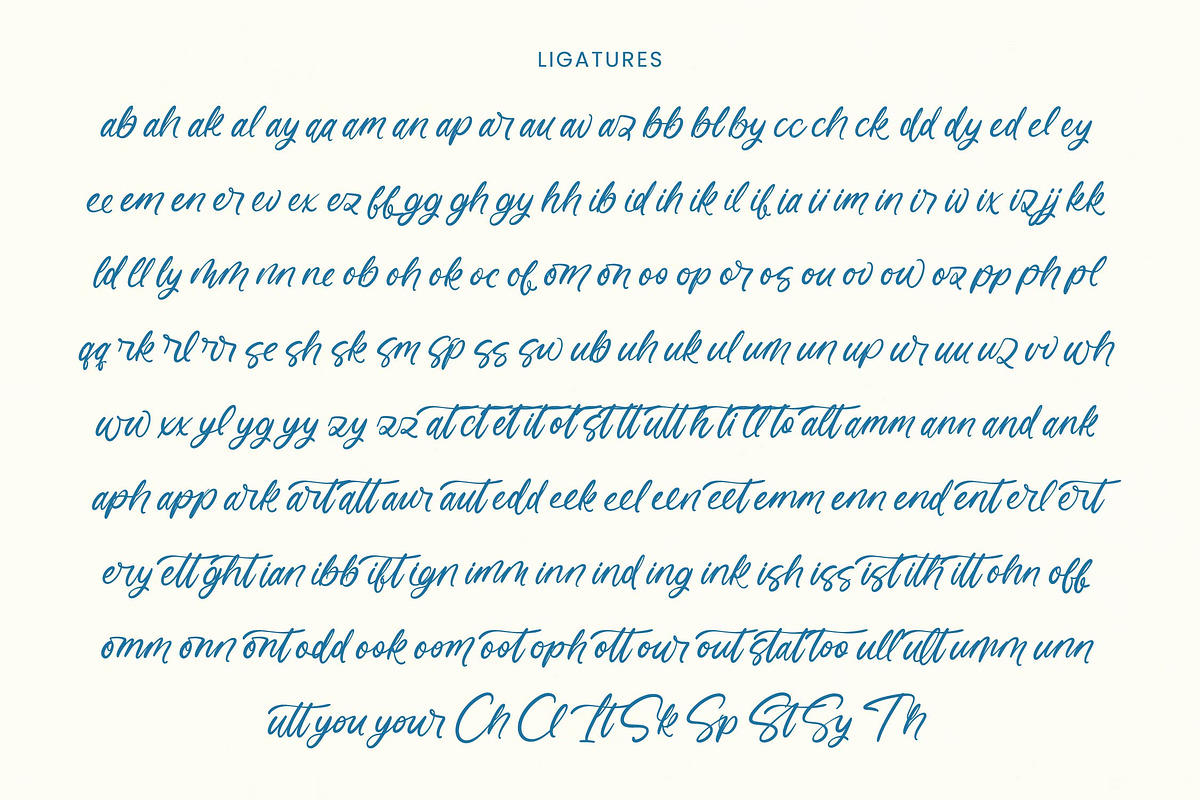 LIGATURES
ab ah ak al ay aa am an ap ar au av az bb bl by cc ch ck dd dy ed el ey
ee em en er ev ex ez ff gg gh gy hh ib id ih ik il if ia ii im in ir iv ix iz jj kk
ld ll ly mm nn ne ob oh ok oc of om on oo op or os ou ov ow oz pp ph pl
qq rk rl rr se sh sk sm sp ss sw ub uh uk ul um un up ur uu uz vv wh
ww xx yl yg yy zy zz at ct et it ot st tt utt th ti tl to alt amm ann and ank
aph app ark art att aur aut edd eek eel een eet emm enn end ent erl ert
ery ett ght ian ibb ift ign imm inn ind ing ink ish iss ist ith itt ohn off
omm onn ont odd ook oom oot oph ott our out stat too ull ult umm unn
utt you your Ch Cl It Sk Sp St Sy Th